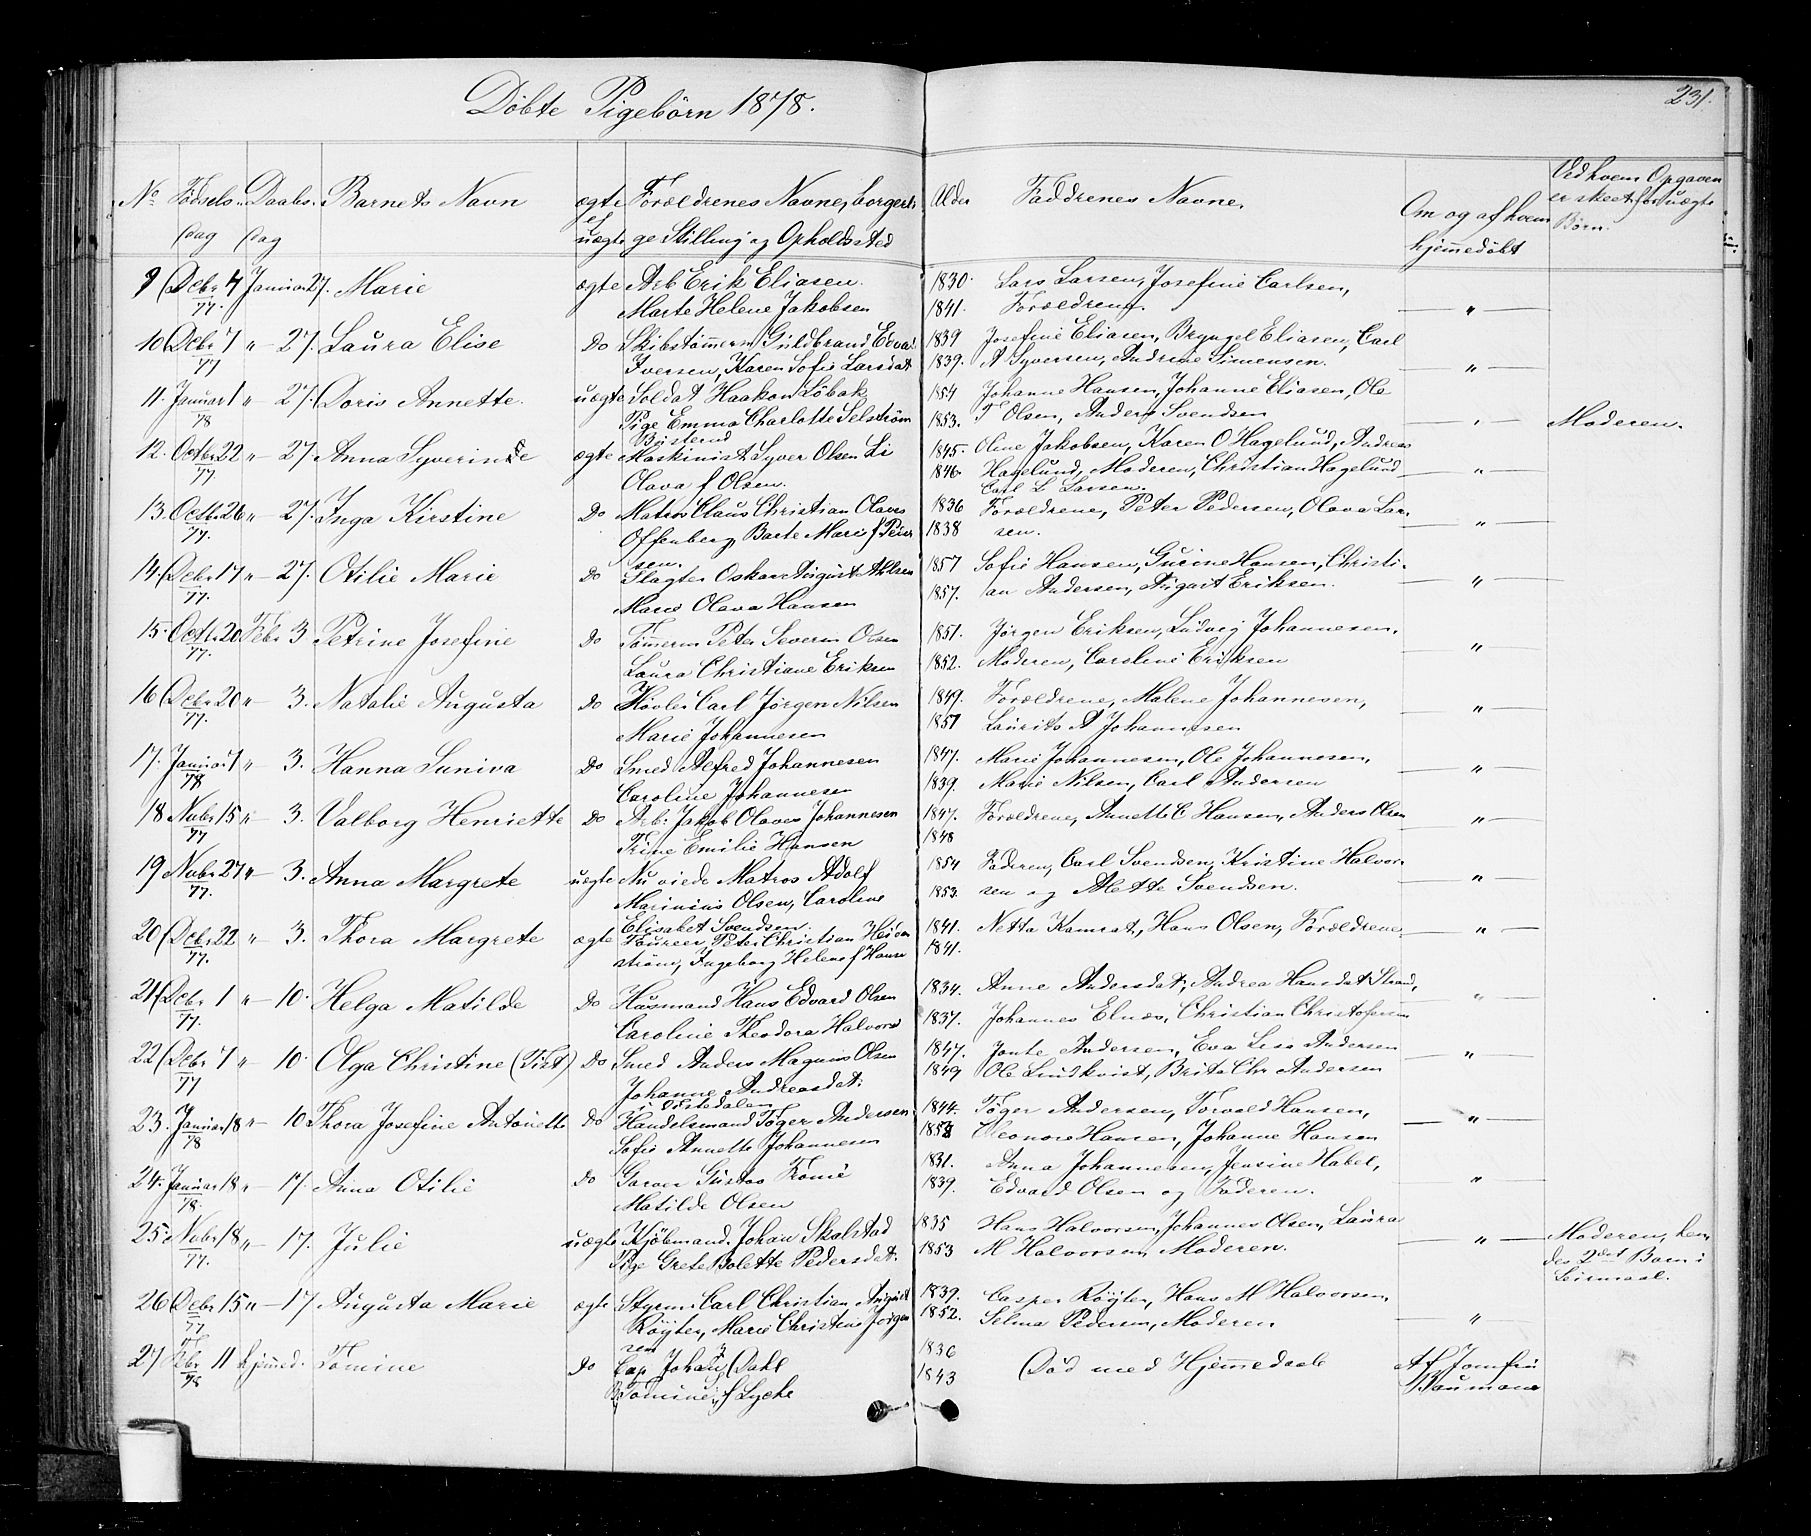 Døbte Pigebørn 1878.
231.
No Fødsels dag Daabs dag Barnets Navn ægte el uægte Forældrenes Navne, borgerli ge Stilling og Opholdssted Alder Faddrenes Navne. Om og af hvem hjemmedøbt Ved hvem Opgaven er skeet for uægte Børn.
9 Debr 4 Januar 27. Marie ægte Arb Erik Eliasen. 1830. Lars Larsen, Josefine Carlsen,
77. Marte Helene Jakobsen 1841. Forældrene. "
10 Debr 7 " 27. Laura Elise Do Skibstømrm Guldbrand Edva 1839 Josefine Eliasen, Bryngel Eliasen, Carl
77 Iversen, Karen Sofie Larsdat 1839. A Syversen, Andrine Simensen. "
11. Januar 1 " 27. Doris Annette. uægte Soldat Haakon Løbak 1854 Johanne Hansen, Johanne Eliasen, Ole
78 Pige Emma Charlotte Selstrøm 1853. T Olsen, Anders Svendsen " Moderen.
12. Octbr 22 " 27. Anna Syverine ægte Maskinist Syver Olsen Li 1845. Oline Jakobsen, Karen O Hagelund, Andreas
77. Olava f Olsen. 1846. Hagelund, Moderen, Christian Hagelund "
Carl L Larsen.
13. Octb. 26 " 27. Inga Kirstine Do Matros Claus Christian Olaves 1836 Forældrene, Peter Pedersen, Olava Lar
77. Offenberg, Barte Marie f Peder 1838 sen. "
sen.
14. Debr 17 " 27. Otilie Marie Do Slagter Oskar August Ahlsen 1857 Sofie Hansen, Gurine Hansen, Christi
77. Marie Olava Hansen 1857. an Andersen, August Eriksen. "
15. Octb. 20 Febr 3 Petrine Josefine Do Tømmerm Peter Severin Olsen 1851. Jørgen Eriksen, Ludvig Johannesen.
77. Laura Christiane Eriksen 1852. Moderen, Caroline Eriksen "
16 Debr 20 " 3. Natalie Augusta Do Høvler Carl Jørgen Nilsen 1849. Forældrene, Malene Johannesen,
77. Marie Johannesen 1851 Laurits A Johannesen "
17. Januar 1 " 3. Hanna Suniva Do Smed Alfred Johannesen 1847. Marie Johannesen, Ole Johannesen,
78 Caroline Johannesen 1839. Marie Nilsen, Carl Andersen "
18 Nvbr 15 " 3. Valborg Henriette Do Arb. Jakob Olaves Johannesen 1847. Forældrene, Annette C Hansen, Anders Olsen
77 Trine Emilie Hansen 1848 "
19 Nvbr 27 " 3. Anna Margrete uægte Nu viede Matros Adolf 1854 Faderen, Carl Svendsen, Kristine Halvor
77. Marinius Olsen, Caroline 1853. sen og Alette Svendsen. "
Elisabet Svendsen.
20 Debr 22 " 3. Thora Margrete ægte Peter Christian 1841. Netta Kamrat, Hans Olsen, Forældrene
77. strøm, Ingeborg Helene f Hanse 1841. "
21 Debr 1 " 10. Helga Matilde Do Husmand Hans Edvard Olsen 1834. Anne Andersdat, Andrea Hansdat Strand,
77. Caroline Theodora Halvors 1837. Johannes Elnæs, Christian Christofersen "
22 Debr 7 " 10. Olga Christine (Tist) Do Smed Anders Magnus Olsen 1847. Jonte Andersen, Eva Lisa Andersen
77 Johanne Andreasdat. 1849 Ole Lindkvist, Brita Chr Andersen "
23. Januar 18 " 10. Thora Josefine Antonette Do Handelsmand Tøger Andersen 1844. Tøger Andersen, Torvald Hansen,
78 Sofie Annette Johannesen 1852 Leonore Hansen, Johanne Hansen "
24. Januar 18 " 17. Anna Otilie Do Garver Gustav Tromie 1831. Anna Johannesen, Jensine Habel,
78. Matilde Olsen 1839. Edvard Olsen og Faderen. "
25. Nvbr 18 " 17. Julie uægte Kjøbmand Johan Skalstad 1835 Hans Halvorsen, Johannes Olsen, Laura
77. Pige Grete Bolette Pedersdat. 1853 M Halvorsen, Moderen. " Moderen, hen
des 2det Barn i
Leiermaal.
26 Debr 15 " 17 Augusta Marie ægte Styrm Carl Christian August 1839. Casper Røyter, Hans M Halvorsen,
77 Røyter, Marie Christine Jørgen 1852. Selma Pedersen, Moderen "
sen
27 Febr 11 hjemmed. Tomine Do Cap Johan Dahl 1836 Død med Hjemmedaab Af Jomfru
78 Tomine f Lycke 1843 Baumann